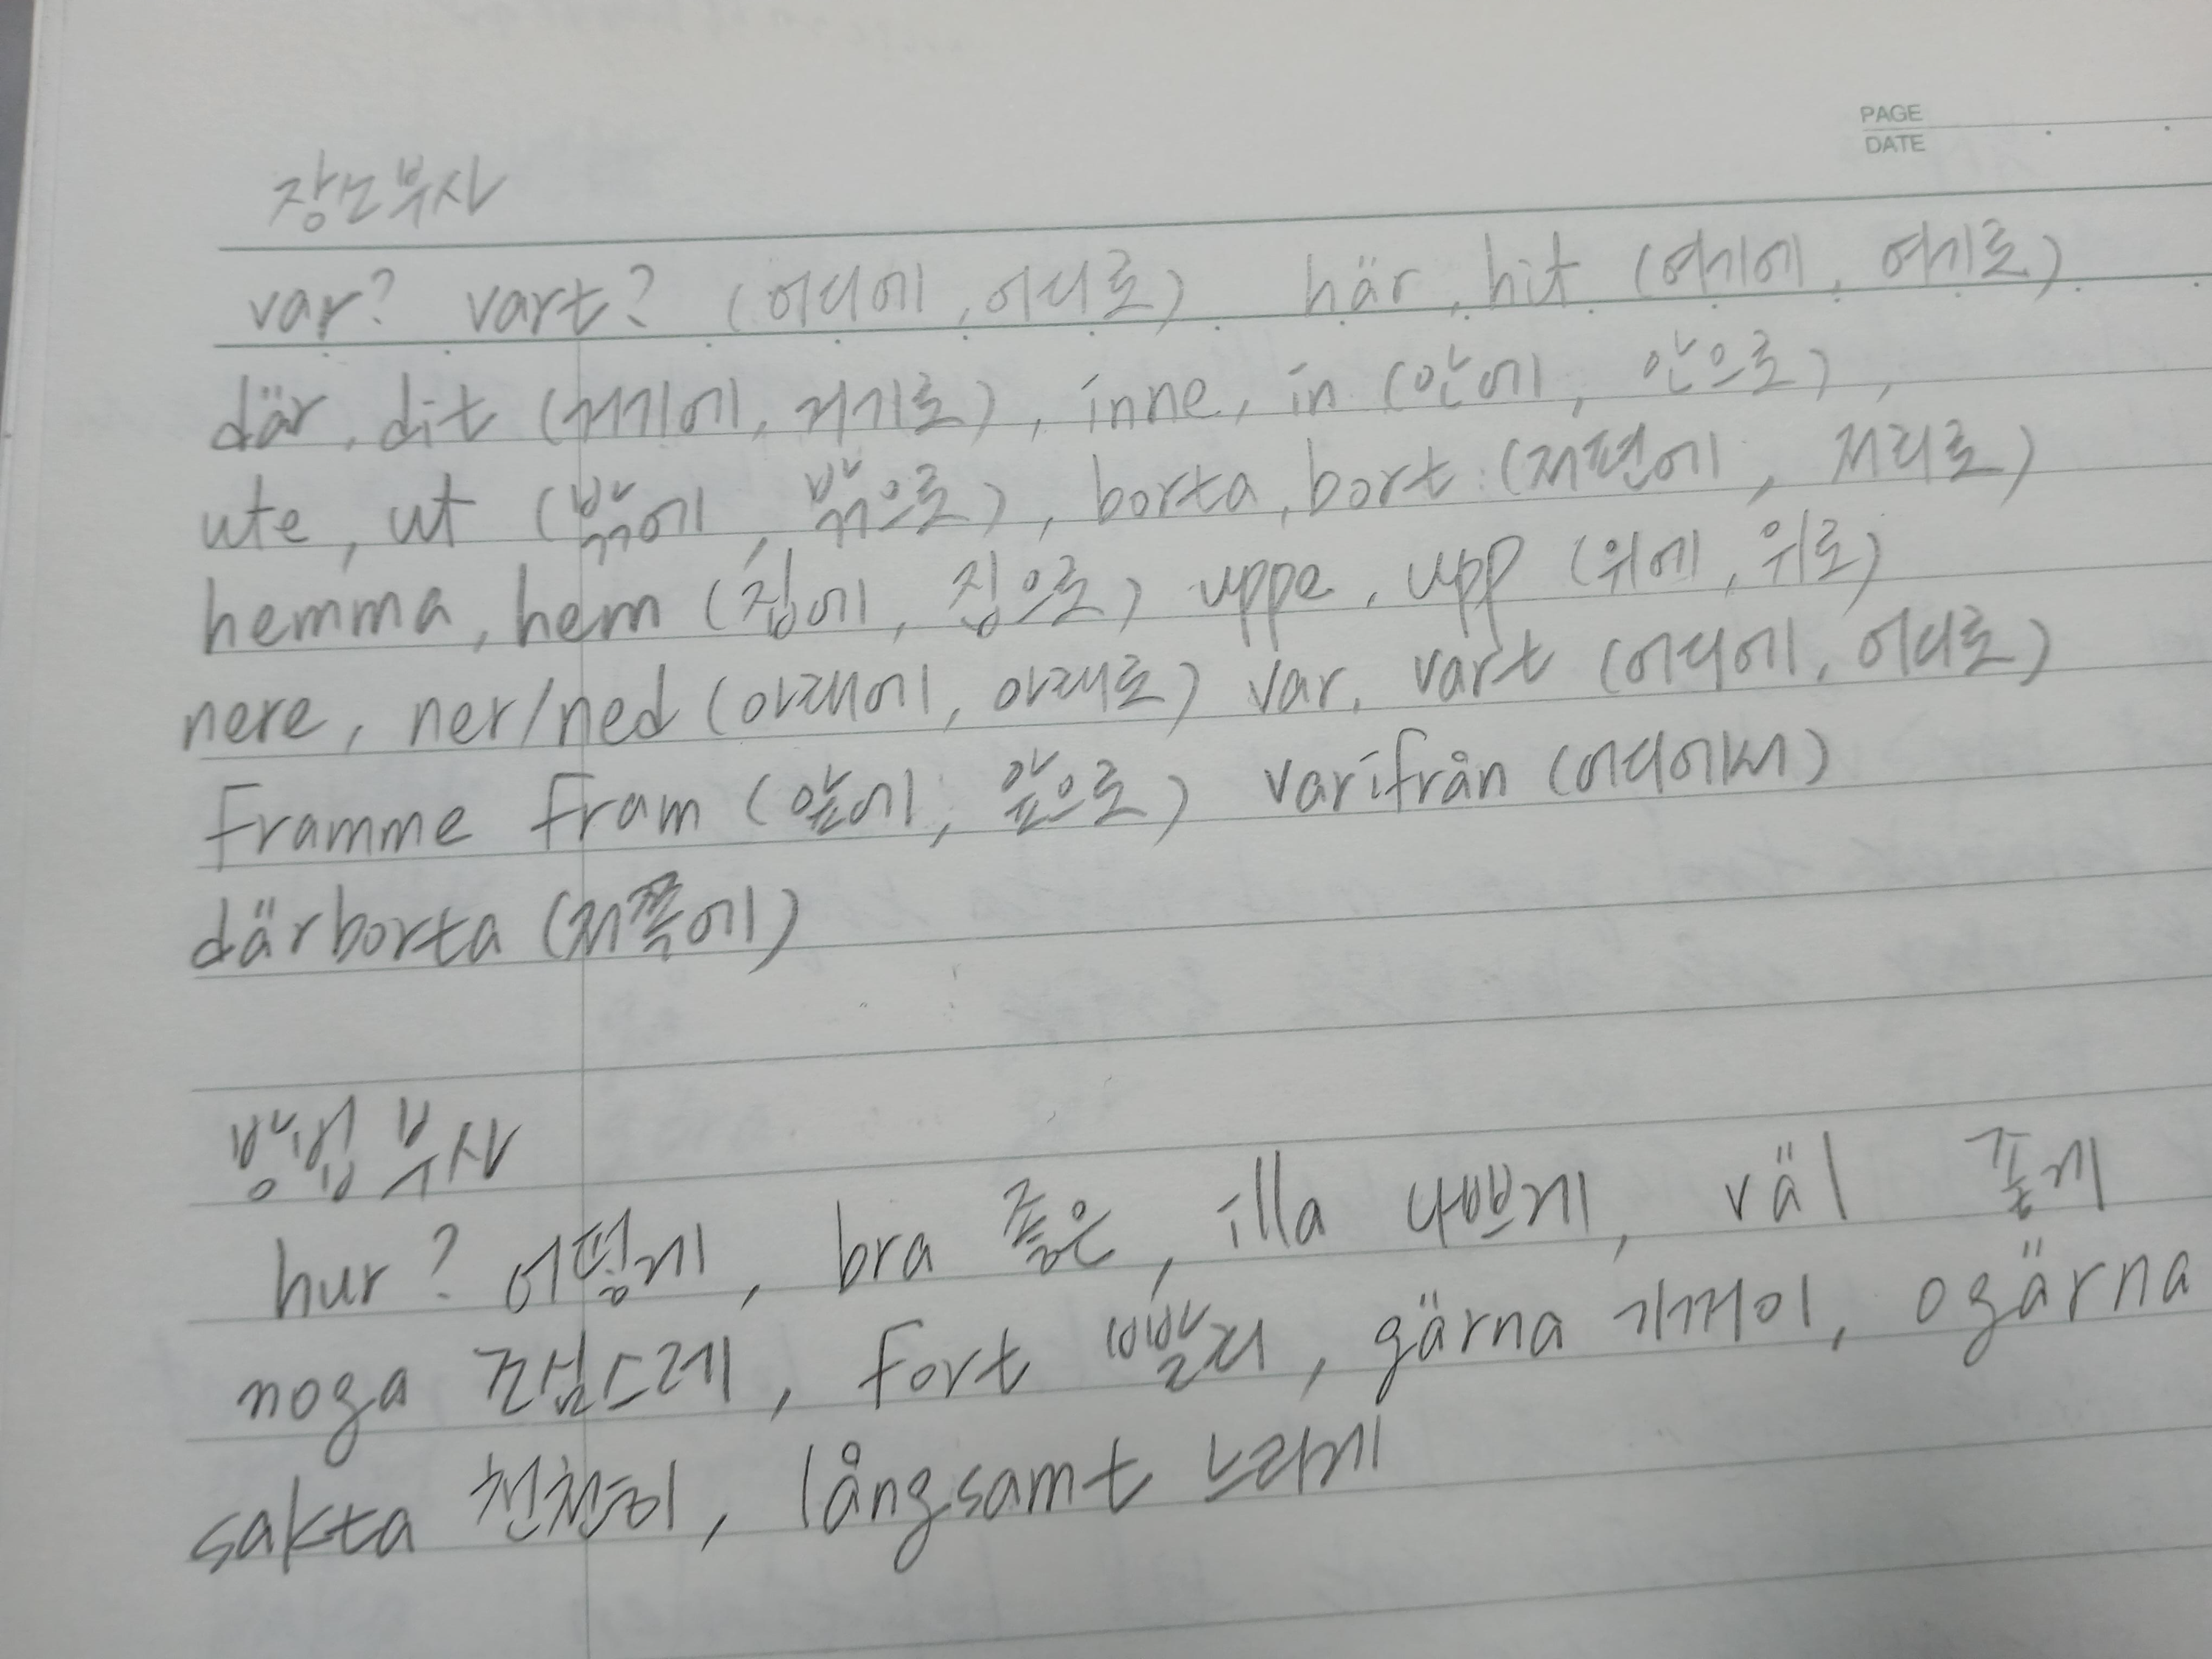 PAGE
DATE
장소부사
var? vart? (어디에, 어디로) här, hit (여기에, 여기로)
där, dit (거기에, 거기로), inne, in (안에, 안으로),
ute, ut (밖에, 밖으로), borta, bort (저편에, 저리로)
hemma, hem (집에, 집으로) uppe, upp (위에, 위로)
nere, ner/ned (아래에, 아래로) var, vart (어디에, 어디로)
framme fram (앞에, 앞으로) varifrån (어디에서)
därborta (저쪽에)
방법 부사
hur? 어떻게, bra 좋은, illa 나쁘게, väl 좋게
noga 조심스레, fort 빨리, gärna 기꺼이, ogärna
sakta 천천히, långsamt 느리게